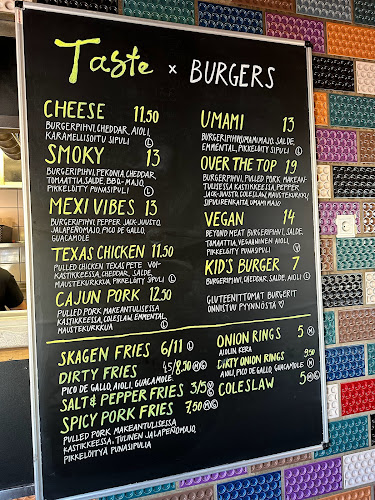 Taste x BURGERS
CHEESE 11.50
BURGERPIHVI, CHEDDAR, AIOLI,
KARAMELLISOITU SIPULI L
SMOKY 13
BURGERPIHVI, PEKONIA, CHEDDAR,
TOMAATTIA, SALDE, BBQ-MAJO,
PIKKELÖITY PUNASIPULI L
MEXI VIBES 13
BURGERPIHVI, PEPPER JACK-JUUSTO,
JALAPEÑOMAJO, PICO DE GALLO,
GUACAMOLE
TEXAS CHICKEN 11.50
PULLED CHICKEN TEXAS PETE VOI-
KASTIKKEESSA, CHEDDAR, SALDE,
MAUSTEKURKKUA, PIKKELÖITY PUNASIPULI L
CAJUN PORK 12.50
PULLED PORK MAKEANTULISESSA
KASTIKKEESSA, COLESLAW, EMMENTAL,
MAUSTEKURKKUA L
UMAMI 13
BURGERPIHVI, UMAMIMAJO, SALDE,
EMMENTAL, PIKKELÖITY SIPULI L
OVER THE TOP 19
BURGERPIHVI, PULLED PORK MAKEAN-
TULISESSA KASTIKKEESSA, PEPPER
JACK-JUUSTO, COLESLAW, MAUSTEKURKKU,
SIPULIRENKAITA, UMAMI MAJO
VEGAN 14
BEYOND MEAT BURGERPIHVI, SALDE,
TOMAATTIA, VEGAANINEN AIOLI,
PIKKELÖITY PUNASIPULI
KID'S BURGER 7
BURGERPIHVI, CHEDDAR, SALDE, AIOLI L
GLUTEENITTOMAT BURGERIT
ONNISTUU PYYNNÖSTÄ
SKAGEN FRIES 6/11 L
DIRTY FRIES 4,5/8,50 M G
PICO DE GALLO, AIOLI, GUACAMOLE
SALT & PEPPER FRIES 3/5
SPICY PORK FRIES 7,50 M G
PULLED PORK MAKEANTULISESSA
KASTIKKEESSA, TULINEN JALAPEÑOMAJO,
PIKKELÖITYÄ PUNASIPULIA
ONION RINGS 5 M
AIOLIN KERA
DIRTY ONION RINGS 9,50
AIOLI, PICO DE GALLO, GUACAMOLE M
COLESLAW 5 M G